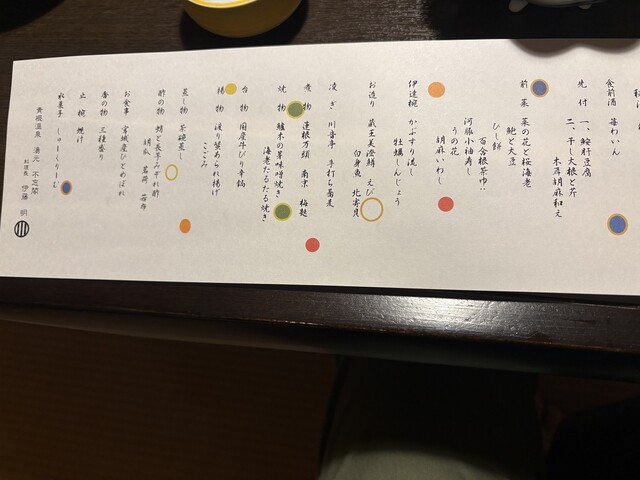 食前酒　苺わいん
先　付　一、鮟肝豆腐
二、干し大根と芹
木耳胡麻和え
前　菜　菜の花と桜海老
百合根茶巾
河豚小袖寿し
うの花
胡麻いわし
ひし餅
鮑と大豆
伊達椀　かぶすり流し
牡蠣しんじょう
お造り　蔵王美澄鱒　えび
白身魚　北寄貝
凌　ぎ　川音亭　手打ち蕎麦
煮　物　蓮根万頭　南京　梅麩
焼　物　鱸木の芽味噌焼き
海老たるたる焼き
台　物　国産牛ぴり辛鍋
揚　物　湊り蟹あられ揚げ
こごみ
蒸し物　茶碗蒸
酢の物　鰆と長芋みぞれ酢
胡瓜　茗荷　若布
お食事　宮城産ひとめぼれ
香の物　三種盛り
止　椀　焼け
水菓子　しゅーくりーむ
青根温泉　湯元　不忘閣
料理長　伊藤　明